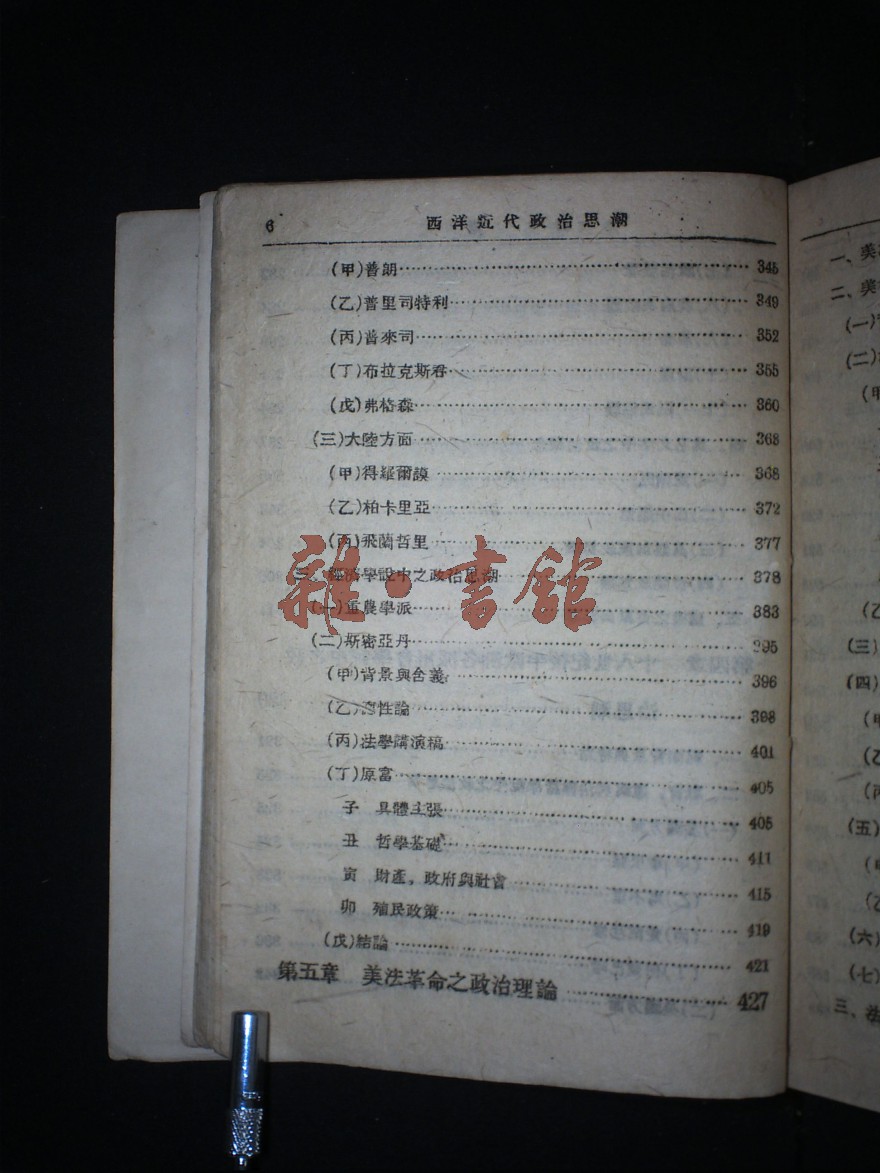 6 西洋近代政治思潮
(甲)普朗 345
(乙)普里司特利 349
(丙)普來司 352
(丁)布拉克斯吞 355
(戊)弗格森 360
(三)大陸方面 368
(甲)得羅爾謨 368
(乙)柏卡里亞 372
(丙)飛蘭哲里 377
三、經濟學說中之政治思潮 378
(一)重農學派 383
(二)斯密亞丹 395
(甲)背景與含義 396
(乙)德性論 398
(丙)法學講演稿 401
(丁)原富 405
子 具體主張 405
丑 哲學基礎 411
寅 財產,政府與社會 415
卯 殖民政策 419
(戊)結論 421
第五章 美法革命之政治理論 427
雜·書館
一、美
二、美
(一)
(二)
(甲
(乙
(三)
(四)
(甲
(乙
(丙
(五)
(甲
(乙
(六)
(七)
三、法